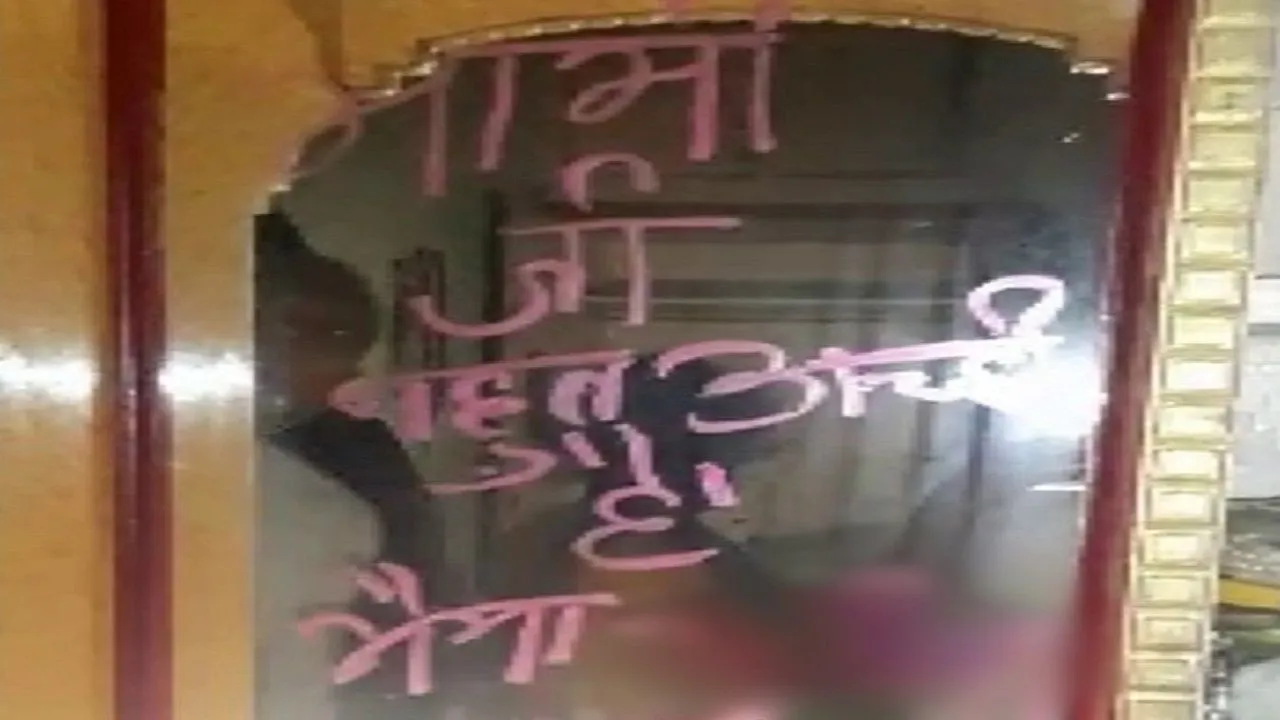 भाभी
जी
बहुत अच्छी
है।
भैया